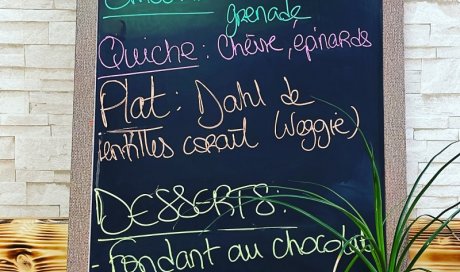 grenade
Quiche : Chèvre, épinards
Plat : Dahl de
lentilles corail (Veggie)
DESSERTS :
- Fondant au chocolat